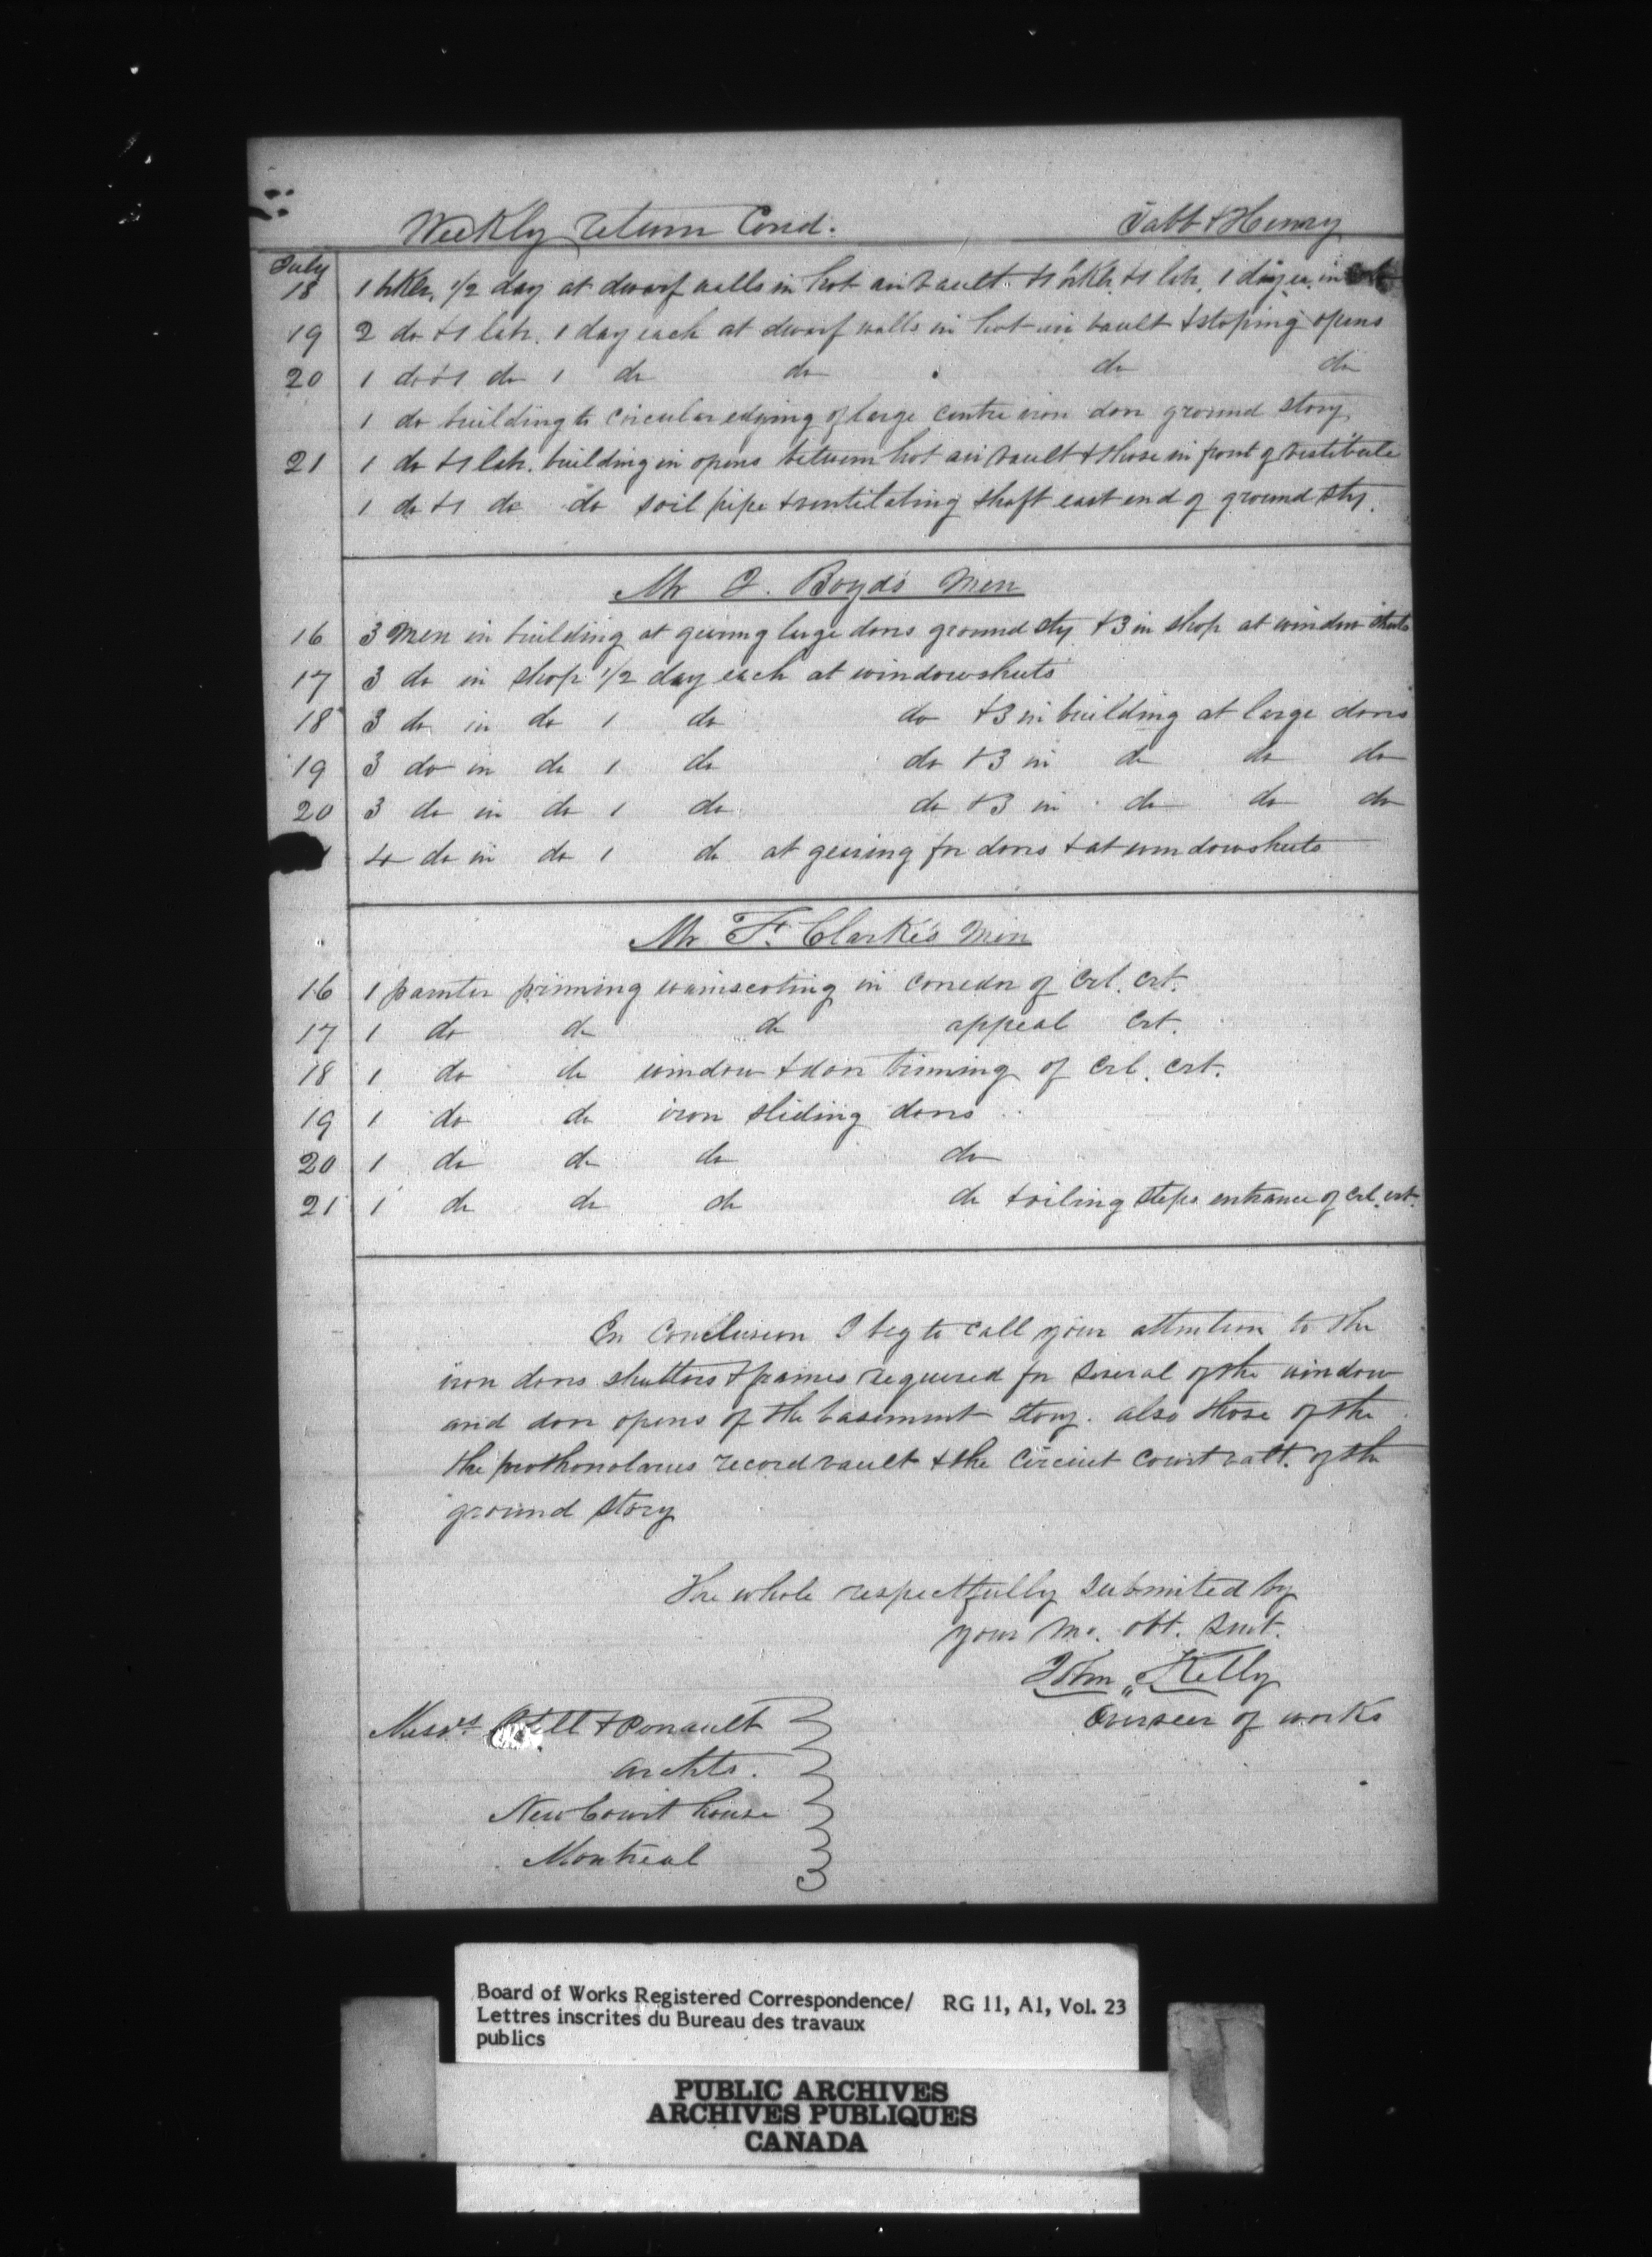 Weekly return Cond. Tabb & Henry
July
18 1 brklr. 1/2 day at dwarf walls in hot air vault. & 1 brklr. & 1 labr. 1 day ea. in
19 2 do & 1 labr. 1 day each at dwarf walls in hot air vault & stoping opens
20 1 do & 1 do 1 do do do do
1 do building to circular edging of large centre iron door ground story
21 1 do & 1 labr. building in opens between hot air vault & those in front of vestibule
1 do & 1 do do soil pipe & ventilating shaft east end of ground sty.
Mr J. Boyd's Men
16 3 Men in building at gearing large doors ground sty & 3 in shop at window shuts
17 3 do in shop 1/2 day each at windowshuts
18 3 do in do 1 do do & 3 in building at large doors
19 3 do in do 1 do do & 3 in do do do
20 3 do in do 1 do do & 3 in do do do
4 do in do 1 do at gearing for doors & at windowshuts
Mr F. Clarke's Men
16 1 painter priming wainscoting in corredor of Crl. Crt.
17 1 do do do appeal Crt.
18 1 do do window & door triming of Crl. Crt.
19 1 do do iron sliding doors
20 1 do do do do
21 1 do do do do & oiling steps entrance of Crl. crt.
In conclusion I beg to call your attention to the
iron doors shutters & frames required for several of the window
and door opens of the basement story. also those of the
the prothonotaries record vault & the Circuit Court valt. of the
ground story
The whole respectfully submited by
your mo. obt. Servt.
John Kelly
Overseer of works
Messrs. & Perrault
archts.
New Court house
Montreal
Board of Works Registered Correspondence/ RG 11, A1, Vol. 23
Lettres inscrites du Bureau des travaux
publics
PUBLIC ARCHIVES
ARCHIVES PUBLIQUES
CANADA